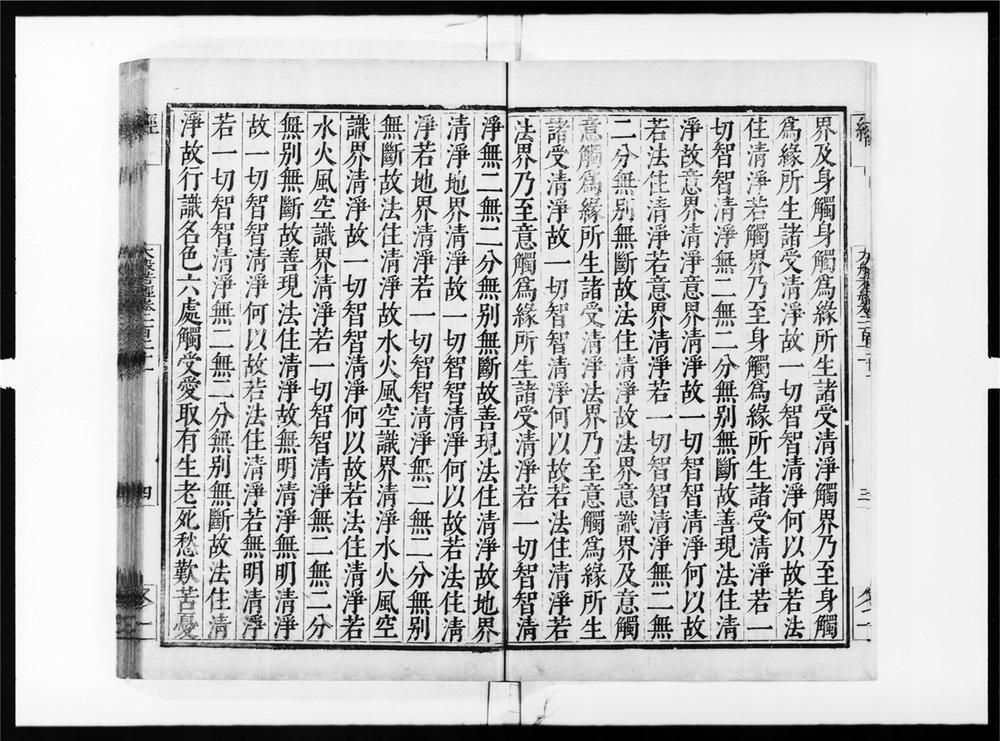 界及身觸身觸爲緣所生諸受清淨觸界乃至身觸
爲緣所生諸受清淨故一切智智清淨何以故若法
住清淨若觸界乃至身觸爲緣所生諸受清淨若一
切智智清淨無二無二分無别無斷故善現法住清
淨故意界清淨意界清淨故一切智智清淨何以故
若法住清淨若意界清淨若一切智智清淨無二無
二分無别無斷故法住清淨故法界意識界及意觸
意觸爲緣所生諸受清淨法界乃至意觸爲緣所生
諸受清淨故一切智智清淨何以故若法住清淨若
法界乃至意觸爲緣所生諸受清淨若一切智智清
淨無二無二分無别無斷故善現法住清淨故地界
清淨地界清淨故一切智智清淨何以故若法住清
淨若地界清淨若一切智智清淨無二無二分無别
無斷故法住清淨故水火風空識界清淨水火風空
識界清淨故一切智智清淨何以故若法住清淨若
水火風空識界清淨若一切智智清淨無二無二分
無别無斷故善現法住清淨故無明清淨無明清淨
故一切智智清淨何以故若法住清淨若無明清淨
若一切智智清淨無二無二分無别無斷故法住清
淨故行識名色六處觸受愛取有生老死愁歎苦憂
經
四